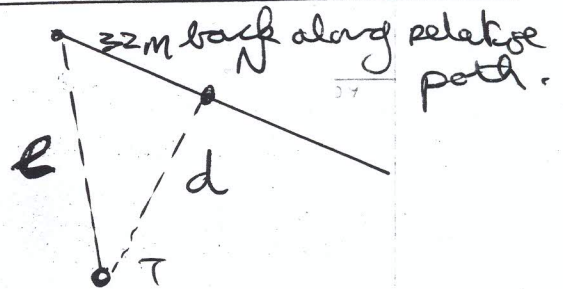 32m back along relative
N path.
e
d
T